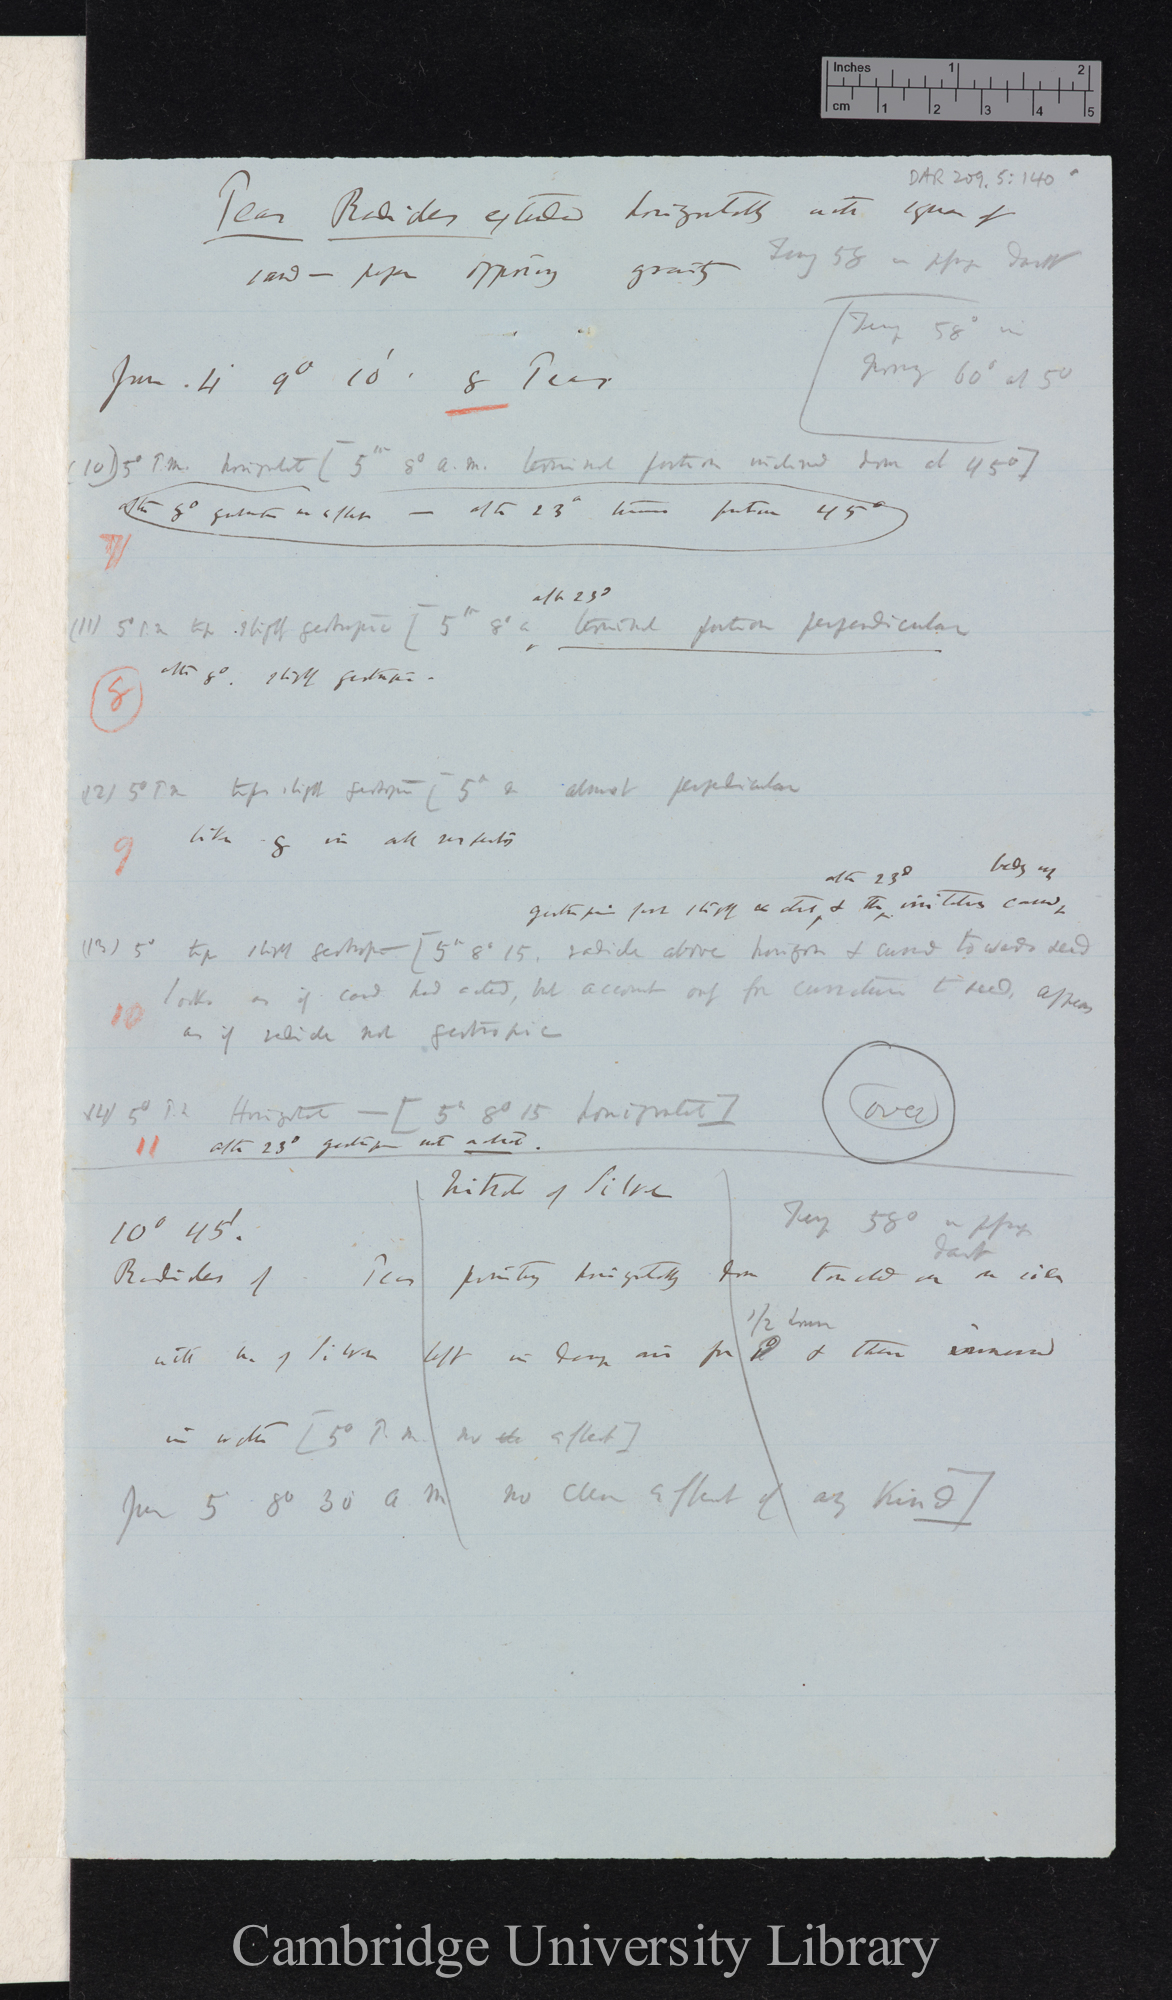 Inches 1 2
cm 1 2 3 4 5
DAR 209.5:140
Peas Radicles extended horizontally with square of
card-paper opposing gravity
Temp 58 in dark
Temp 58° in
morning 60° at 5°
Jan. 4 9° 10'. 8 Peas
(10) 5° P.m. horizontal [5th 8° a.m. terminal portion inclined down at 45°]
after 8° — after 23° portion 45°
7
after 23°
(11) 5° P.m tip slightly geotropic [5th 8° a terminal portion perpendicular
after 8°. slightly geotropic.
8
(12) 5° P.m tip slightly geotropic [5th almost perpendicular
9 like 8 in all respects
after 23°
geotropism first slightly
(13) 5° tip slightly geotropic [5th 8° 15. radicle above horizon & curved towards seed
looks as if card had acted, but account only for curvature to seed, appears
10
as if radicle not geotropic
(14) 5° P.m Horizontal — [5th 8° 15 horizontal]
(over)
11 after 23° geotropism not acted.
Nitrate of Silver
10° 45'.
Temp 58° in
dark
Radicles of Peas pointing horizontally touched on
1/2 hour
with N. of Silver left in damp air for & then immersed
in water [5° P.m. no effect]
Jan 5 8° 30 a m no clear effect of any kind]
Cambridge University Library